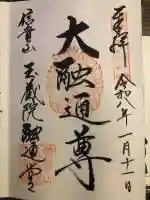 奉拝
令和八年一月十一日
大融通尊
信貴山
玉蔵院融通堂